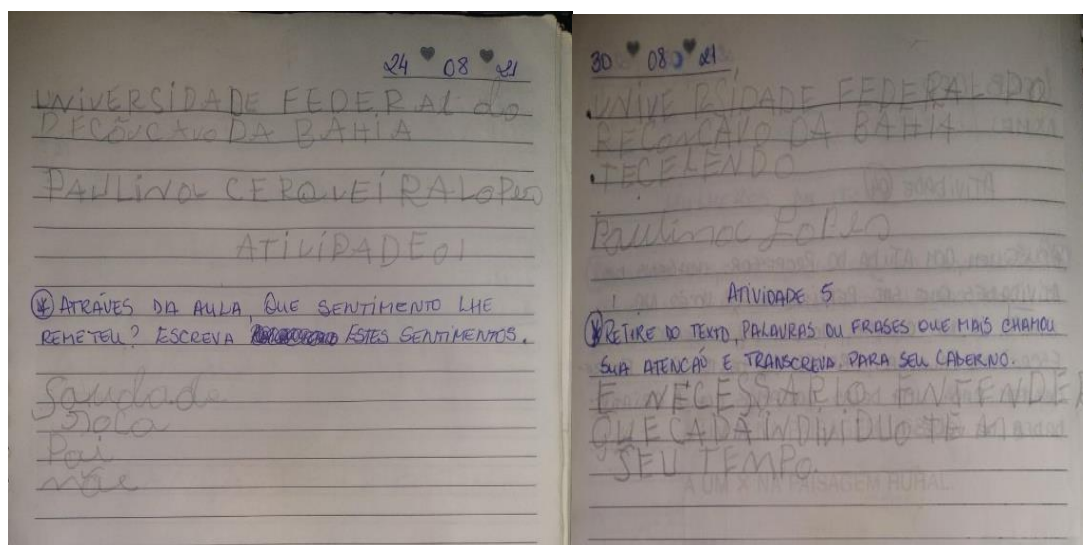 24 ♥ 08 ♥ 21
UNIVERSIDADE FEDERAL do
RECÕNCAVO DA BAHIA
PAULINA CERQUEIRA LOPES
ATIVIDADE 01
* ATRAVÉS DA AULA, QUE SENTIMENTO LHE
REMETEU? ESCREVA ESTES SENTIMENTOS.
Saudade
Pai
mãe
30 ♥ 08 ♥ 21
. UNIVERSIDADE FEDERAL DO
RECONCAVO DA BAHIA
. TECELENDO
Paulina Lopes
ATIVIDADE 5
* RETIRE DO TEXTO, PALAVRAS OU FRASES QUE MAIS CHAMOU
SUA ATENCÃO E TRANSCREVA PARA SEU CADERNO.
E NECESSARIO ENTENDER
QUE CADA INDIVIDUO TEM
SEU TEMPO.